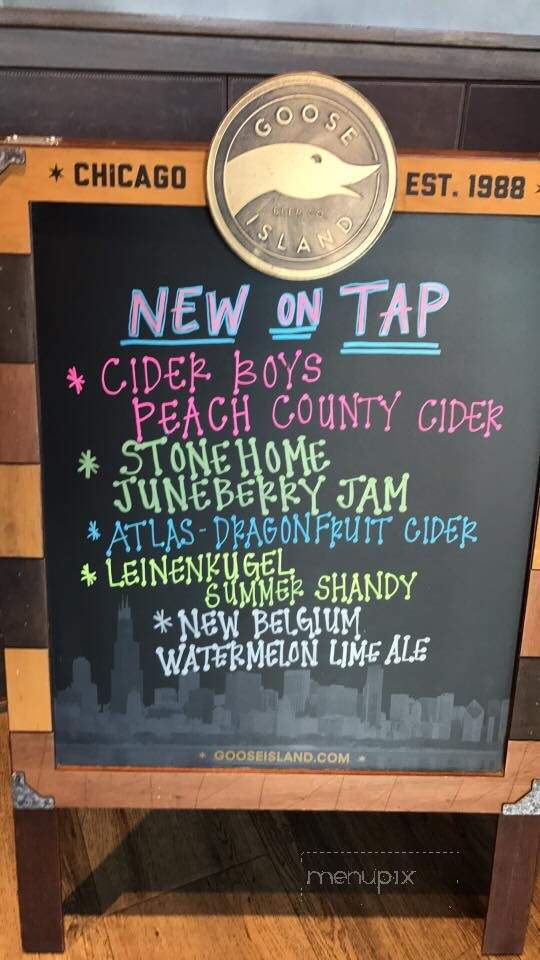 GOOSE
ISLAND
BEER CO.
* CHICAGO
EST. 1988 *
NEW ON TAP
* CIDER BOYS
PEACH COUNTY CIDER
* STONE HOME
JUNEBERRY JAM
* ATLAS - DRAGONFRUIT CIDER
* LEINENKUGEL
SUMMER SHANDY
* NEW BELGIUM
WATERMELON LIME ALE
* GOOSEISLAND.COM *
menupix